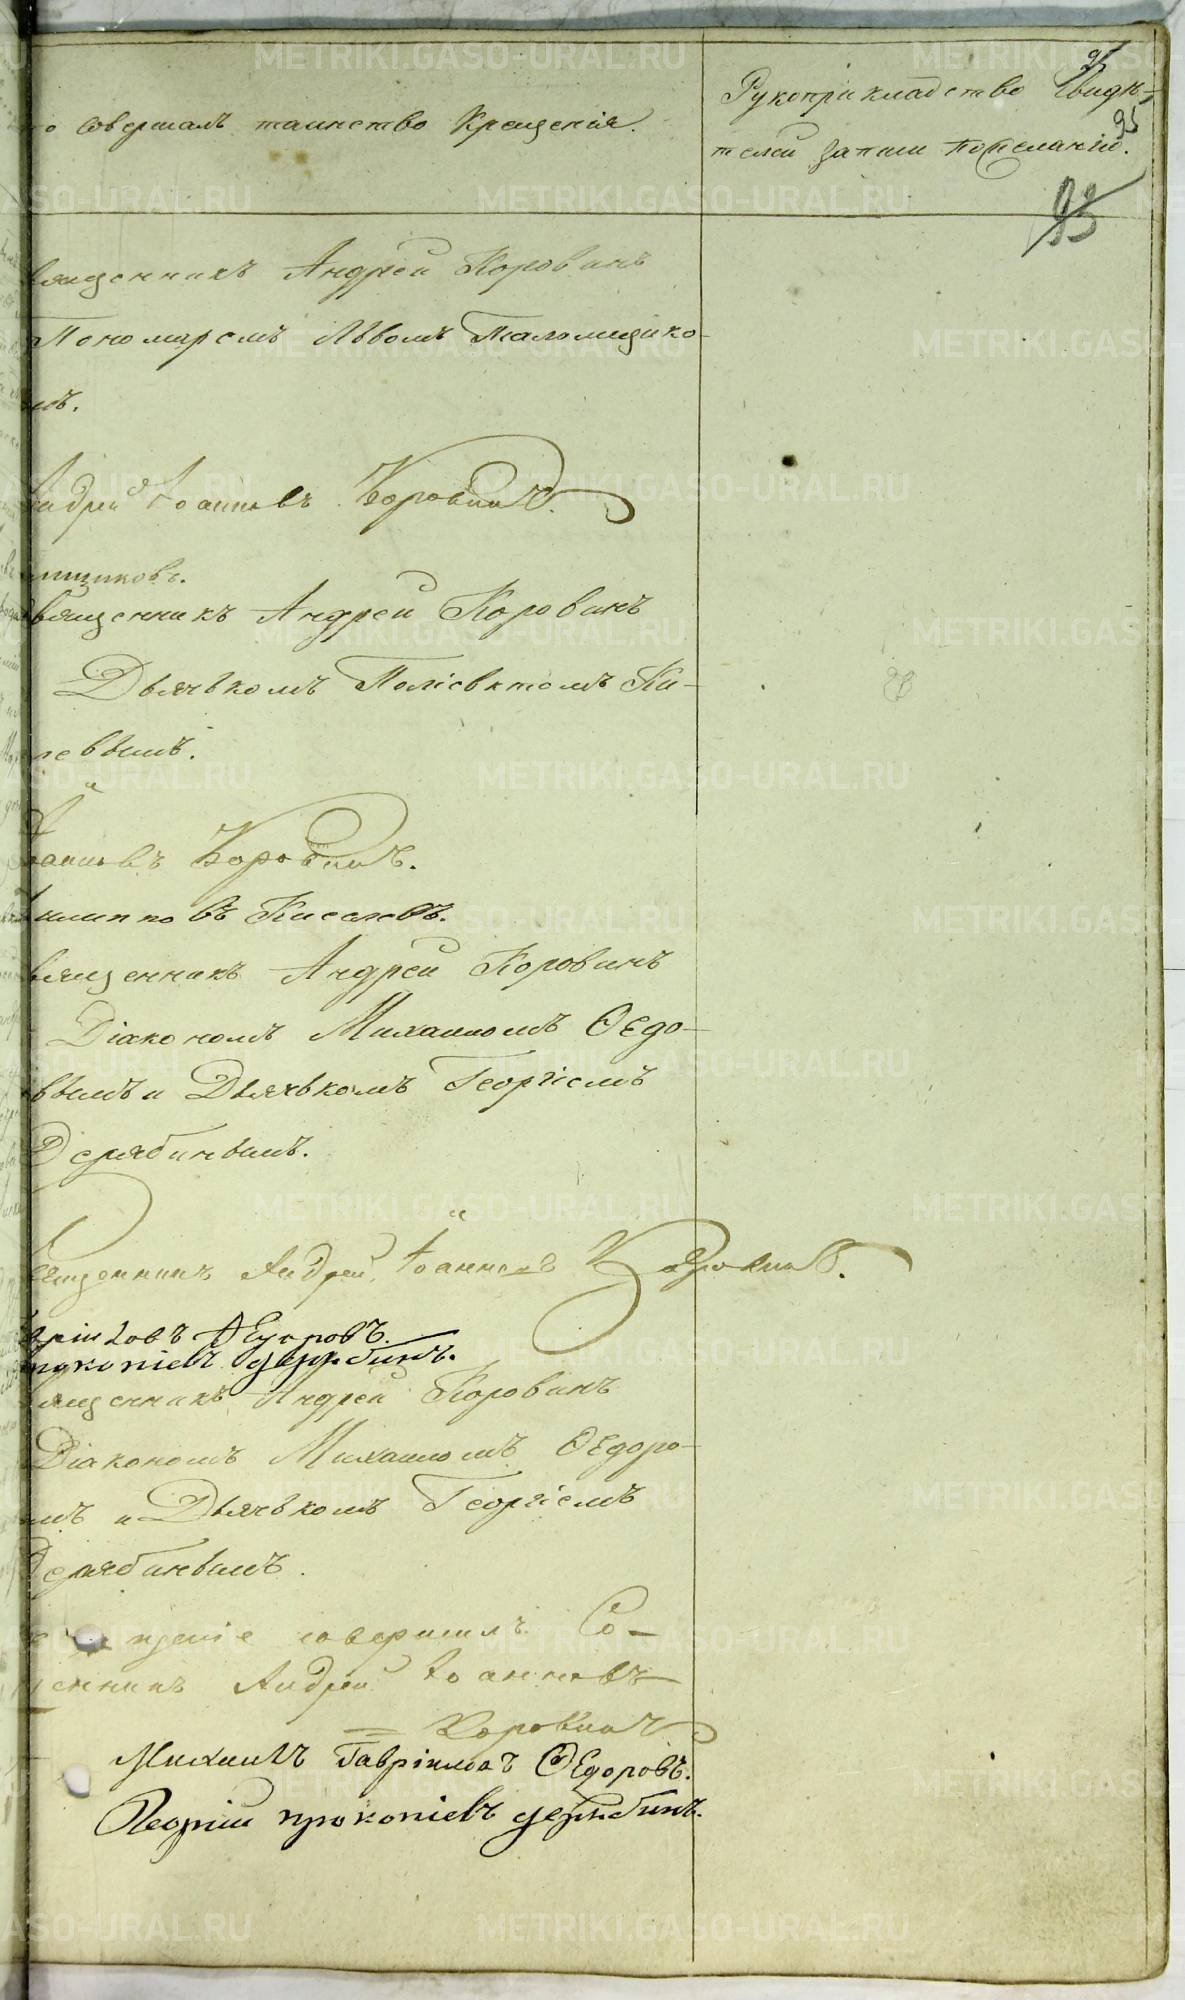 то совершалъ таинство Крещенія.
Рукоприкладство Свидѣ-
телей записи по желанію.
95
93
вященникъ Андрей Коровинъ
Пономаремъ Львомъ Таломщико-
мъ.
Андрей Іоанновъ Коровинъ.
мщиковъ.
вященникъ Андрей Коровинъ
Дьячькомъ Поліевктомъ Ки-
левымъ.
Іоанновъ Коровинъ.
илипповъ Киселевъ.
вященникъ Андрей Коровинъ
Діакономъ Михаиломъ Ѳедо-
вымъ и Дьячькомъ Георгіемъ
Дерябинымъ.
вященникъ Андрей Іоанновъ Коровинъ.
Ѳедоровъ.
рокопіевъ Дерябинъ.
ященникъ Андрей Коровинъ
Діакономъ Михаиломъ Ѳедоро-
мъ и Дьячькомъ Георгіемъ
Дерябинымъ.
щеніе совершилъ Со-
щенникъ Андрей Іоанновъ
Коровинъ
Михаилъ Гавріиловъ Ѳедоровъ.
Георгій Прокопіевъ Дерябинъ.
METRIKI.GASO-URAL.RU